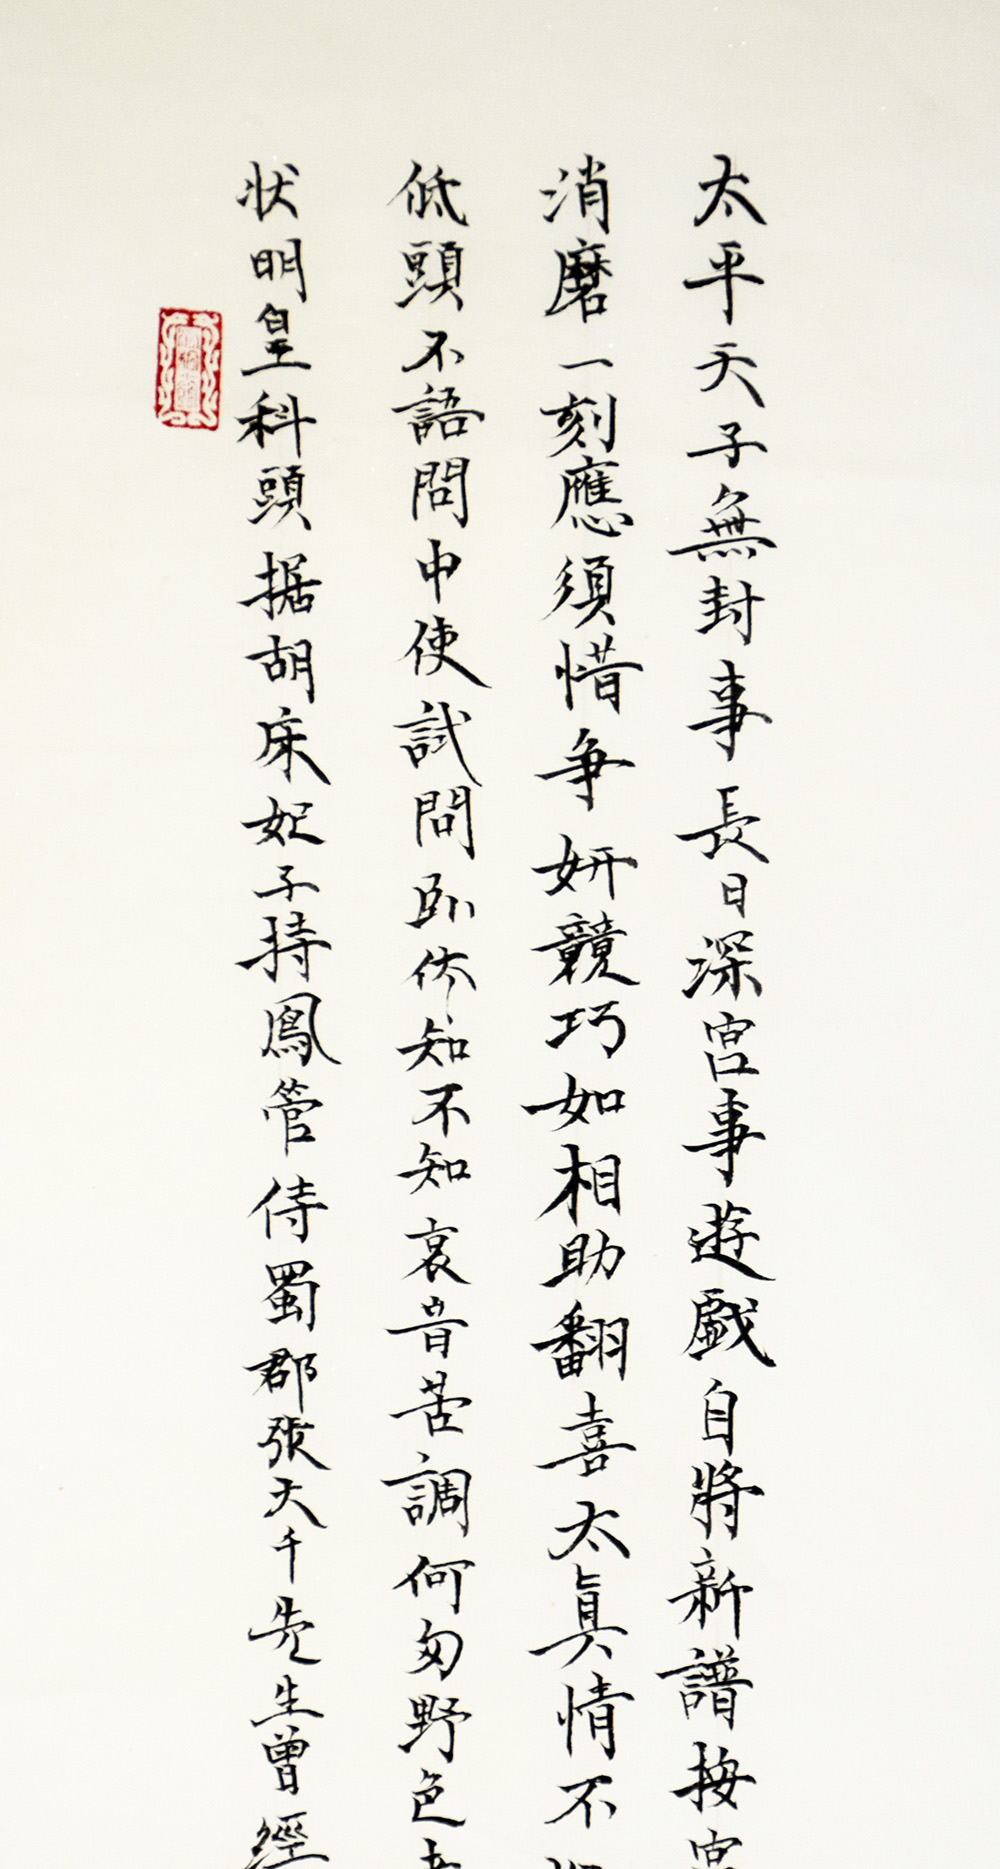 太平天子無封事長日深宮事遊戲自將新譜按宮
消磨一刻應須惜爭妍競巧如相助翻喜太真情不
低頭不語問中使試問卧休知不知哀音苦調何匆野色
状明皇科頭据胡床妃子持鳳管侍蜀郡張大千先生曾經